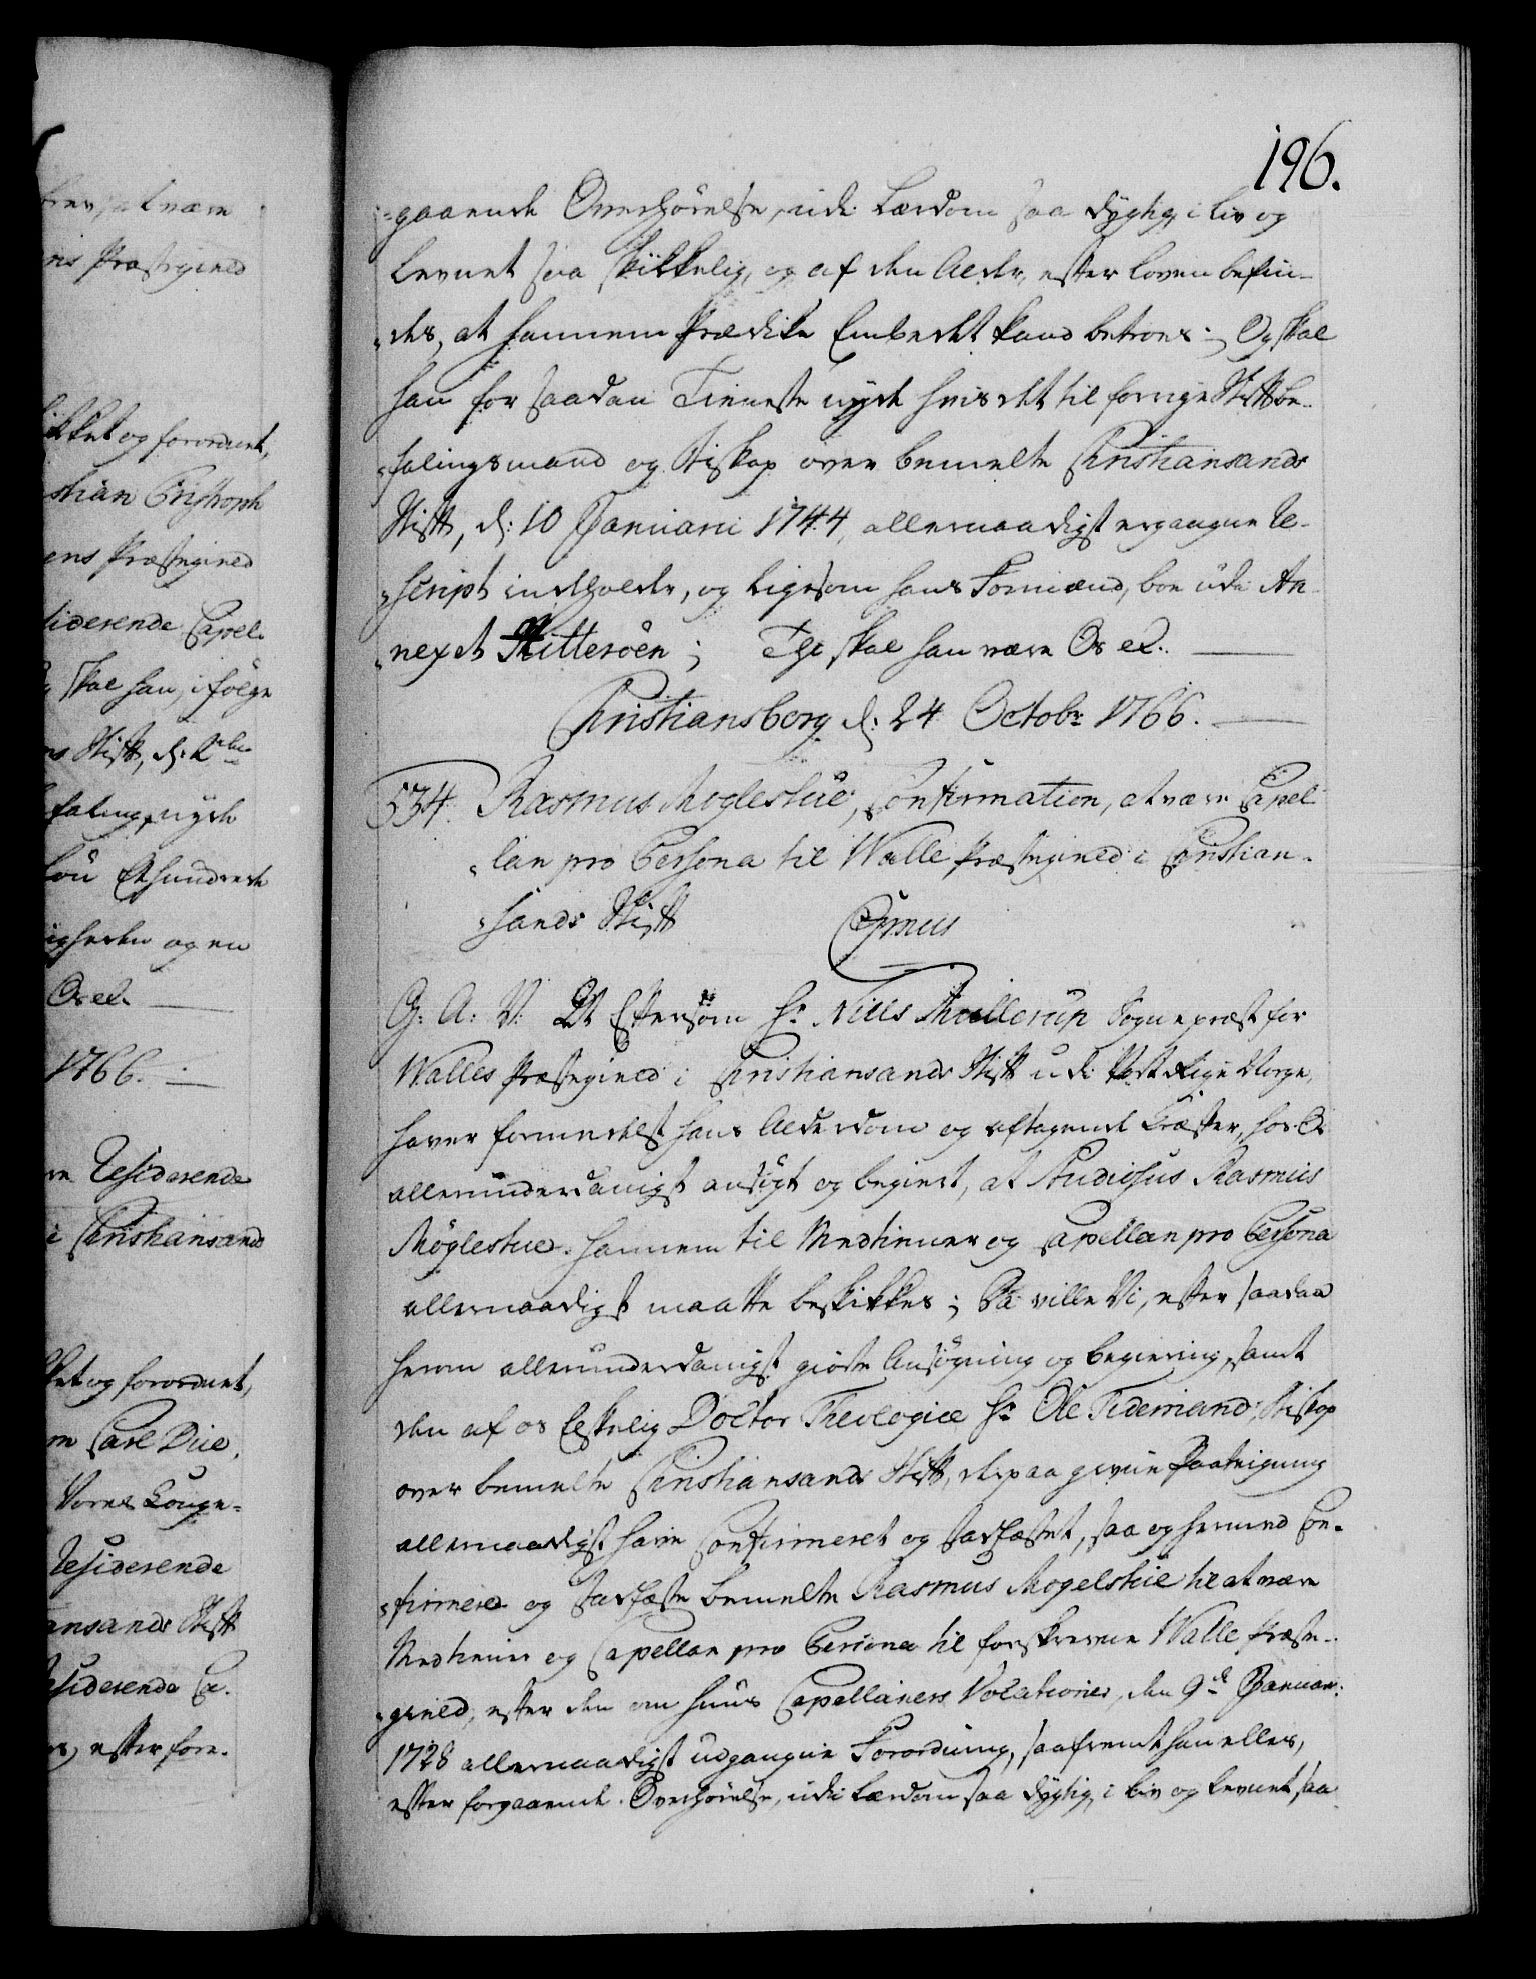 196.
-gaaende Overhørelse, udi Lærdom saa dygtig, i Liv og
Levnet saa skikkelig, og af den Alder, efter Loven befin-
des, at hannem Prædike Embedet kand betroes; Og skal
han for saadan Tieneste nyde hvis det til forrige Stiftbe-
falingsmand og Biskop over bemelte Christiansands
Stift, d: 10 Januarii 1744, allernaadigst ergangne Re-
script indeholder, og ligesom hans Formænd, boe udi An-
nexet Hitterøen; Thi skal han være Os etc.
Christiansborg d: 24 Octobr: 1766.
534. Rasmus Møglestue, Confirmation, at være Capel-
lan pro Persona til Walle Præstegield i Christian-
sands Stift
G: A: V: At Eftersom Hr Niels Møllerup Sognepræst for
Walles Præstegield i Christiansands Stift udi Vort Rige Norge,
haver formedelst hans Alderdom og aftagende Kræfter, hos Os
allerunderdanigst ansøgt og begiert, at Studiosus Rasmus
Møglestue hannem til Medtiener og Capellan pro Persona
allernaadigst maatte beskikkes; Da ville Vi, efter saadan
herom allerunderdanigst giorte Ansøgning og begiering, samt
den af os Elskelig Doctor Theologiæ Hr Ole Tidemand, Biskop
over bemelte Christiansands Stift, derpaa givne Paategning
allernaadigst have Confirmeret og stadfæstet, saa og hermed Con-
firmere og stadfæste bemelte Rasmus Mogelstue til at være
Medtiener og Capellan pro Persona til forskrevne Walle Præste-
gield, efter den om huus Capellaners Vocationer, den 9de Januar:
1728 allernaadigst udgangne Forordning, saafremt han ellers,
efter forgaaende Overhørelse, udi Lærdom saa dygtig, i Liv og Levnet, saa